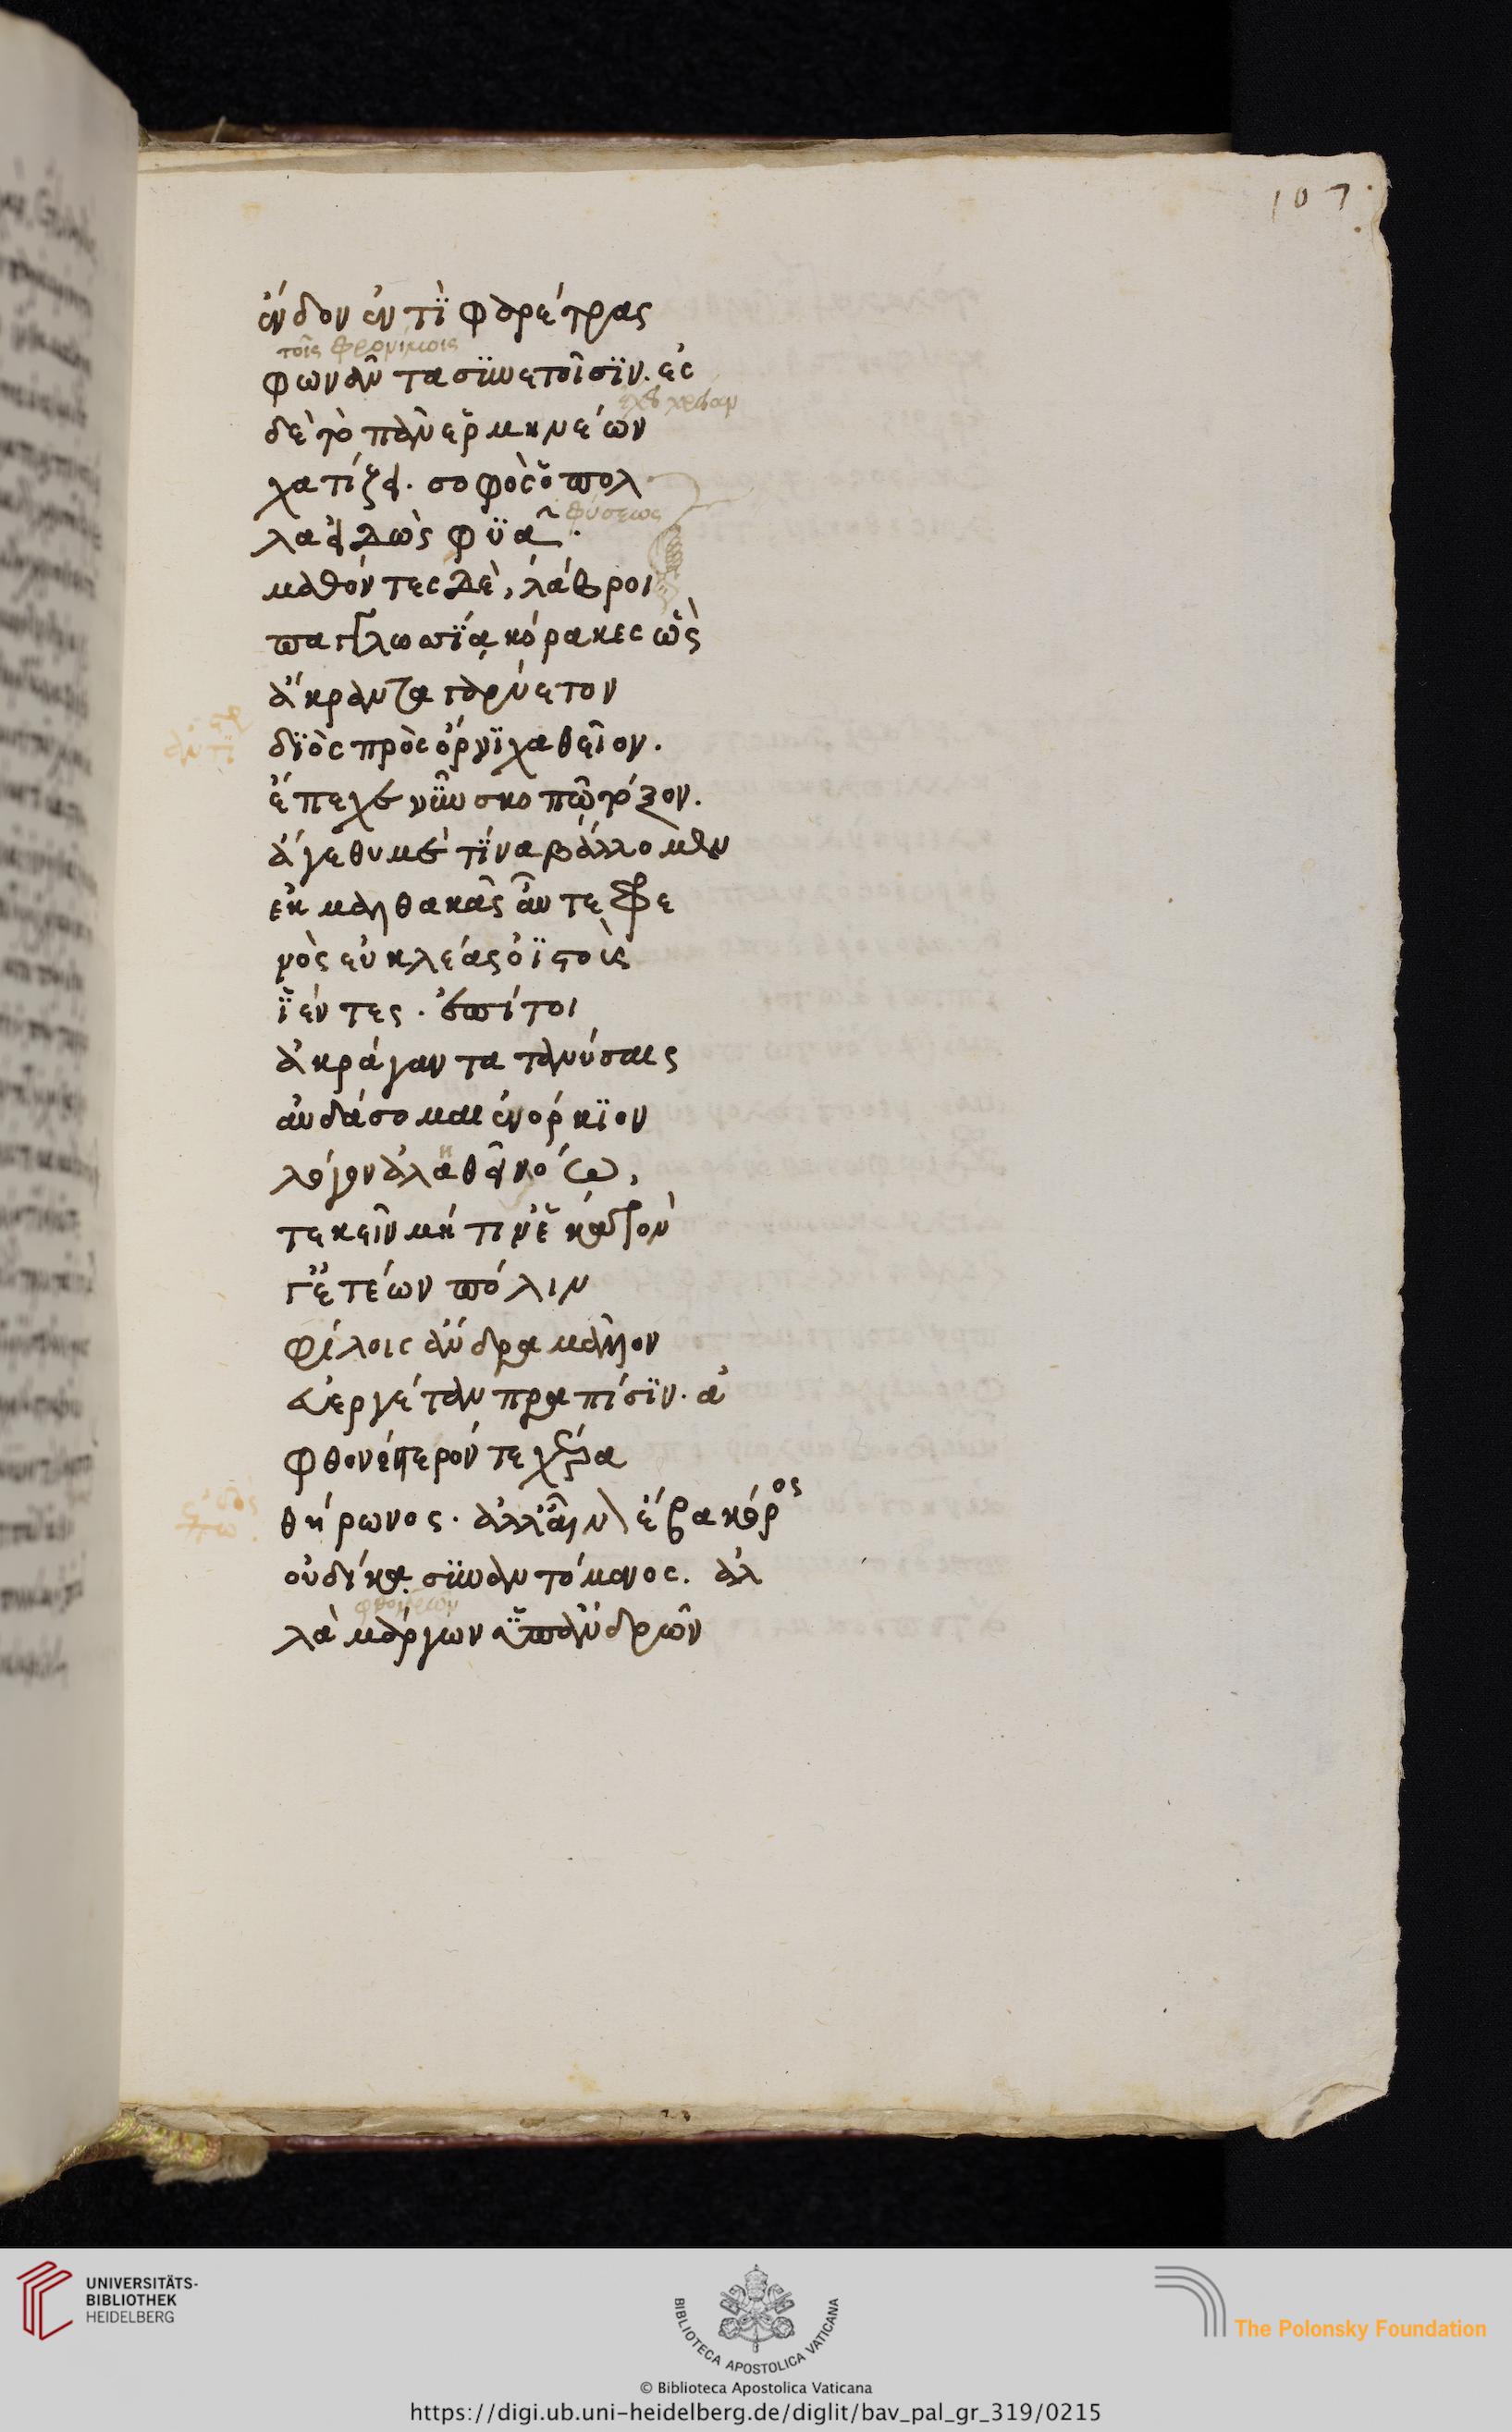 107
ἔνδον ἐντὶ φαρέτρας
τοῖς φρονίμοις
φωνᾶντα συνετοῖσϊν. ἐς
δὲ τὸ πὰν ἑρμηνέων
χατίζει. σοφὸς ὁ πολ
φύσεως
λα εἰδὼς φϋᾶ.
μαθόντες δὲ, λάβροι
παγγλωσσία κόρακες ὣς
ἄκραντα γαρύετον
δϊὸς πρὸς ὄρνϊχα θεῖον.
ἔπεχε νῦν σκοπῶ τόξον.
ἄγε θυμέ τίνα βάλλομεν
ἐκ μαλθακᾶς αὖτε φρε
νὸς εὐκλέας ὀϊστοὺς
ἱέντες. ἐπίτοι
ἀκράγαντα τανύσαις
αὐδάσομαι ἐνόρκϊον
λόγον ἀλαθεῖ νόω,
τεκεῖν μή τιν' ἑκατὸν
γ' ἐτέων πόλιν
φίλοις ἄνδρα μᾶλλον
εὐεργέταν πραπίσϊν. ἀ
φθονέστερόν τε χέρα
θήρωνος. ἀλλ' αἶνον ἔβα κόρος
οὐ δίκα συναντόμενος. ἀλ
λὰ μάργων ὑπ' ἀνδρῶν
UNIVERSITÄTS-
BIBLIOTHEK
HEIDELBERG
BIBLIOTECA APOSTOLICA VATICANA
© Biblioteca Apostolica Vaticana
The Polonsky Foundation
https://digi.ub.uni-heidelberg.de/diglit/bav_pal_gr_319/0215